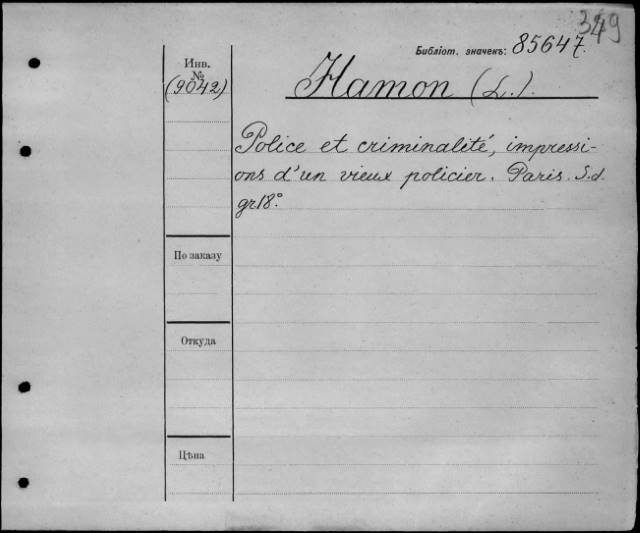 349
Библіот. значекъ: 85647.
Инв.
№
(9042)
Hamon (L.).
Police et criminalité, impressi-
ons d'un vieux policier. Paris. S.d.
gr.18°.
По заказу
Откуда
Цѣна